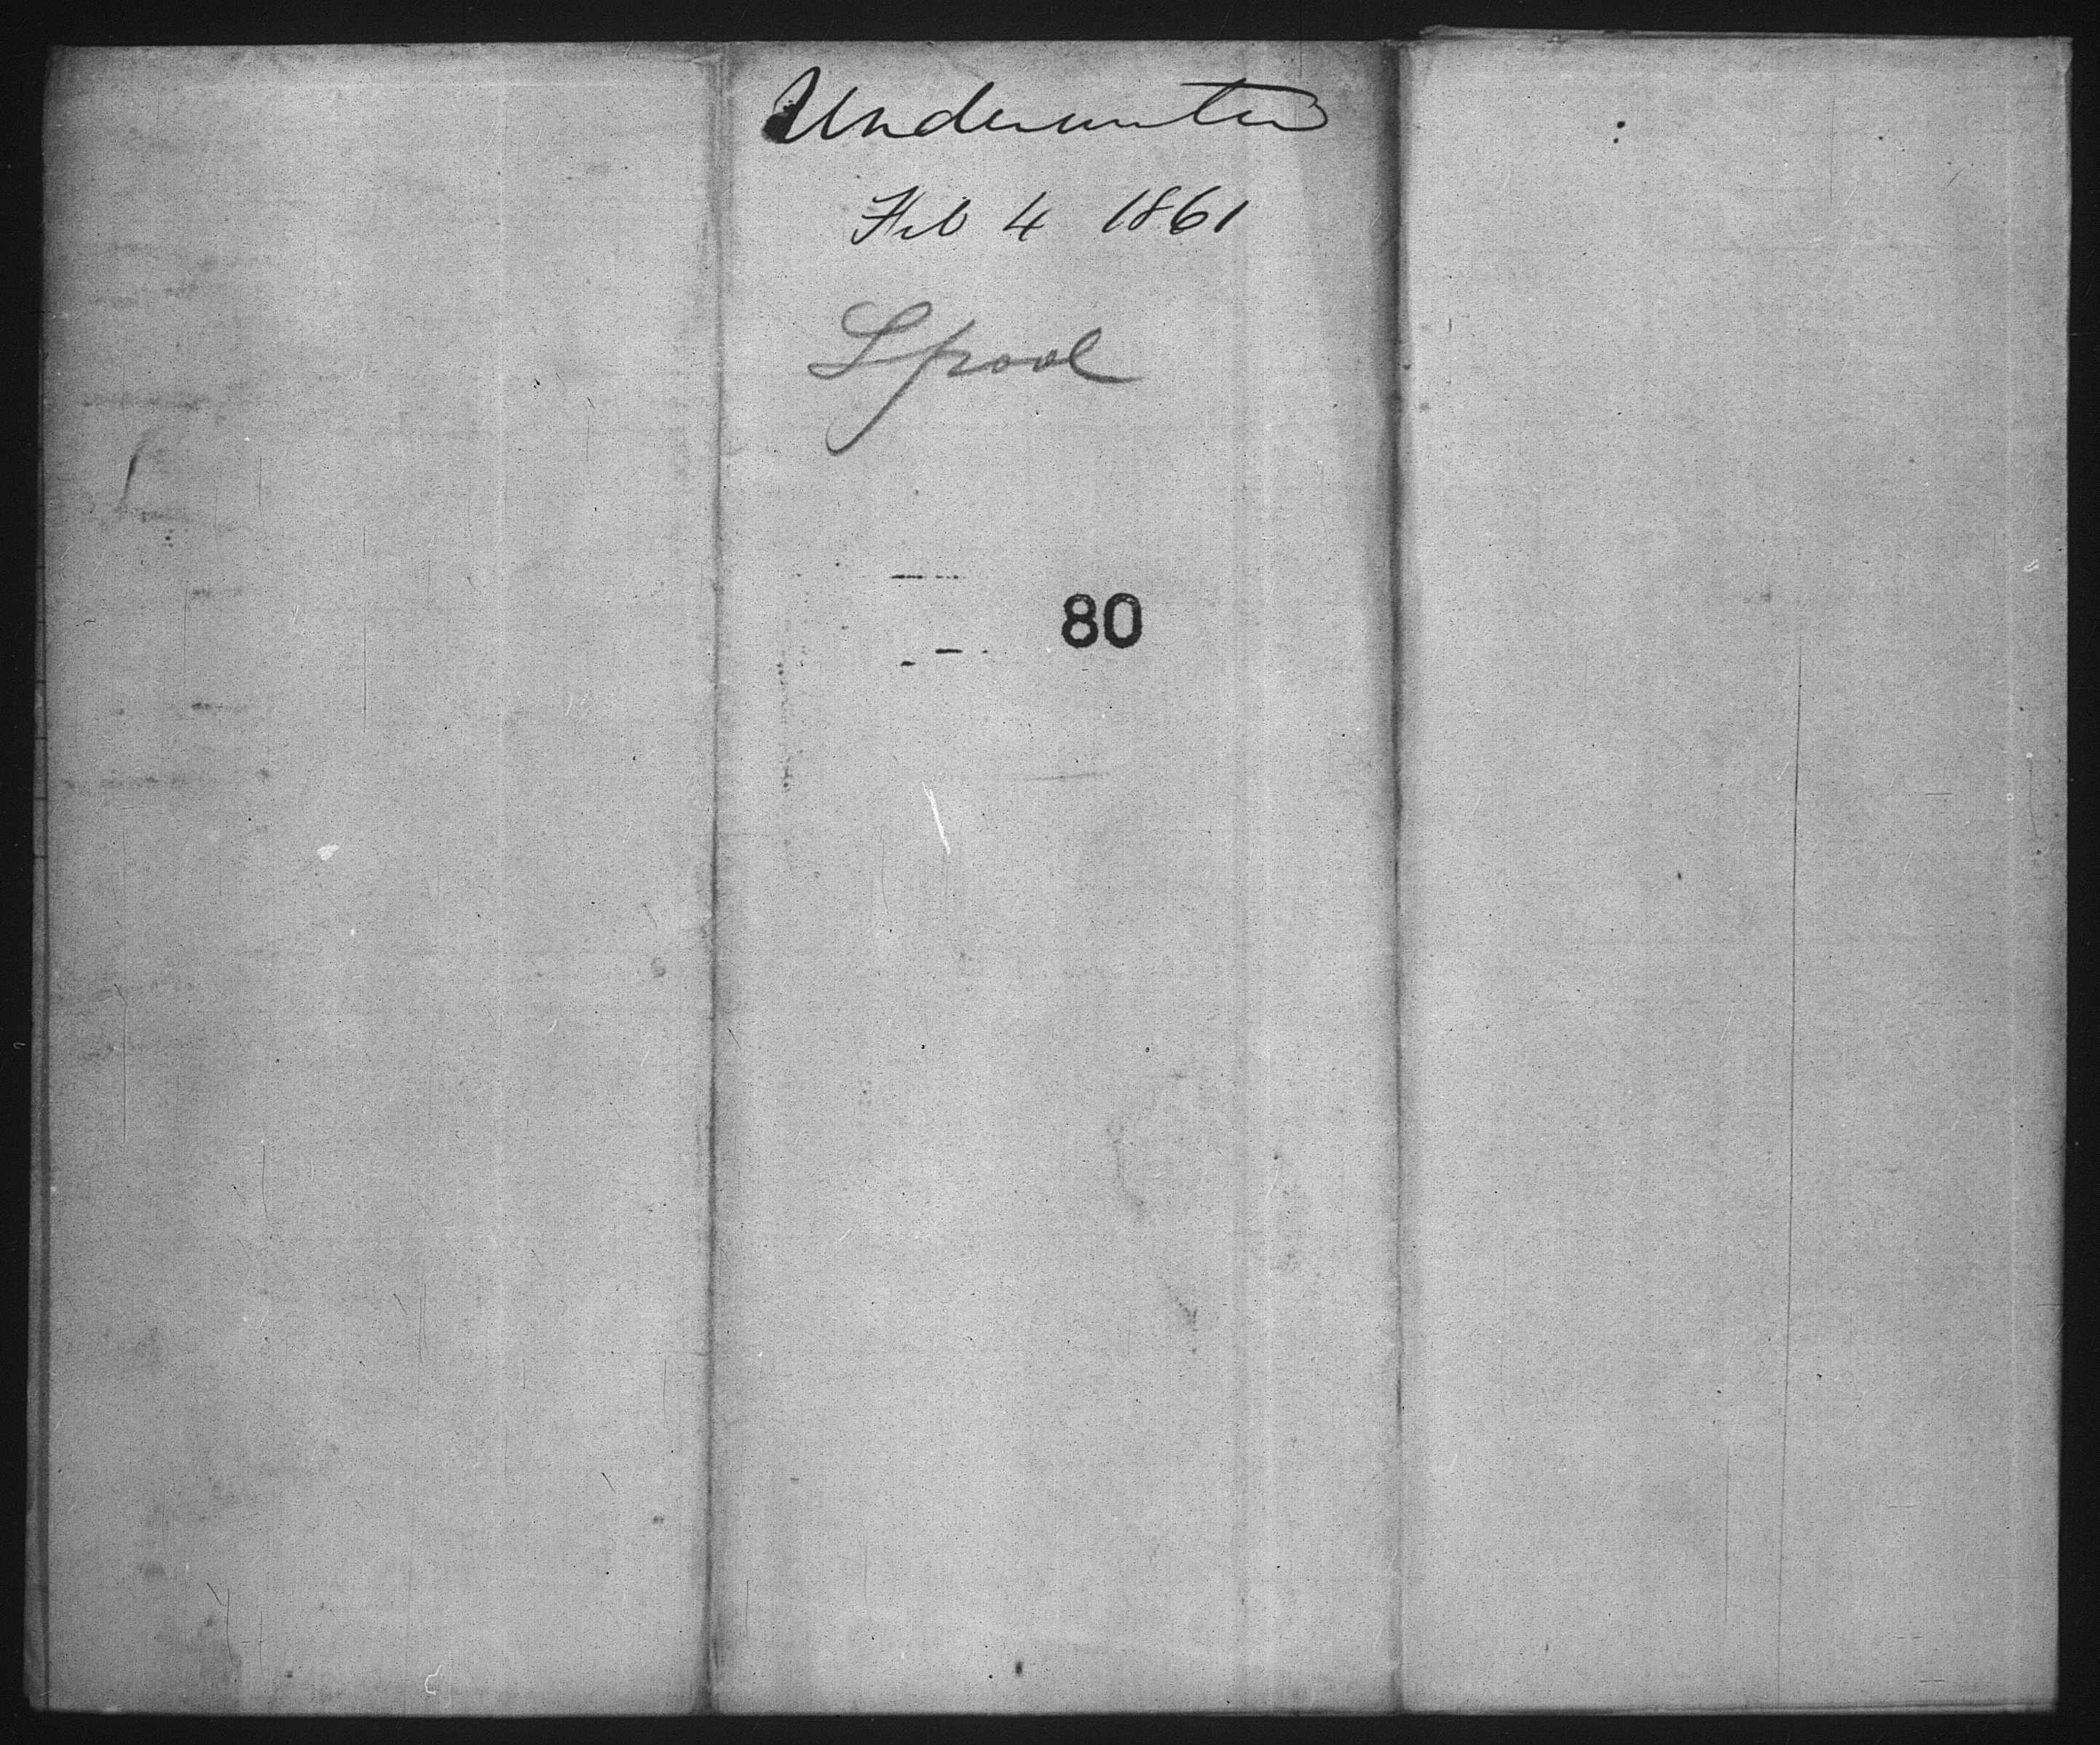 Underwriter
Feb 4 1861
Spool
80